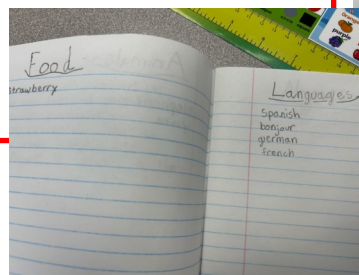 Food
strawberry
Languages
Spanish
bonjour
german
french
purple